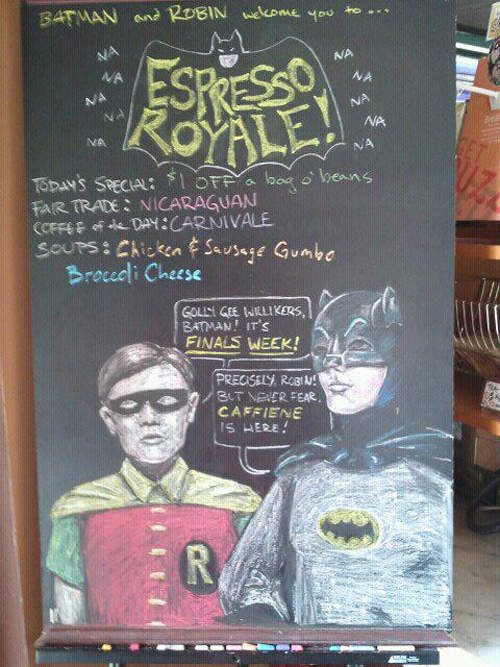 BATMAN and ROBIN welcome you to...
NA NA NA NA NA
NA NA NA NA NA
ESPRESSO
ROYALE!
TODAY'S SPECIAL: $1 OFF a bag o' beans
FAIR TRADE: NICARAGUAN
COFFEE of the DAY: CARNIVALE
SOUPS: Chicken & Sausage Gumbo
Broccoli Cheese
GOLLY GEE WILLIKERS,
BATMAN! IT'S
FINALS WEEK!
PRECISELY, ROBIN!
BUT NEVER FEAR,
CAFFIENE
IS HERE!
R